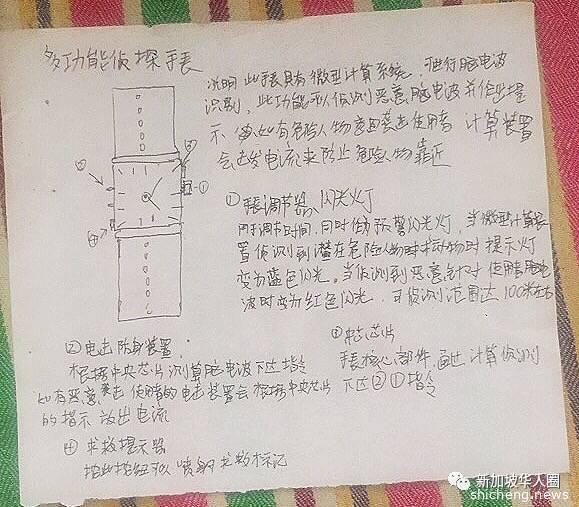 多功能侦探手表
说明 此手表具有微型计算系统，进行脑电波
识别，此功能可以侦测恶意脑电波并作出提
示，如有危险人物意图袭击使用者 计算装置
会发电流来防止危险人物靠近
①手表调节器、闪光灯
用于调节时间，同时作预警闪光灯，当微型计算装
置侦测到潜在危险人物时 时提示灯
变为蓝色闪光。当侦测到恶意针对使用者脑电
波时变为红色闪光，可侦测范围达100米左右
②电击防身装置
根据中央芯片测算脑电波下达指令
如有恶意袭击使用者的电击装置会根据中央芯片
的指示 放出电流
④求救提示器
按此按钮可以喷射求救标记
芯片
手表核心部件，通过计算侦测
下达②①指令
②
③
①
④
新加坡华人圈
shicheng.news